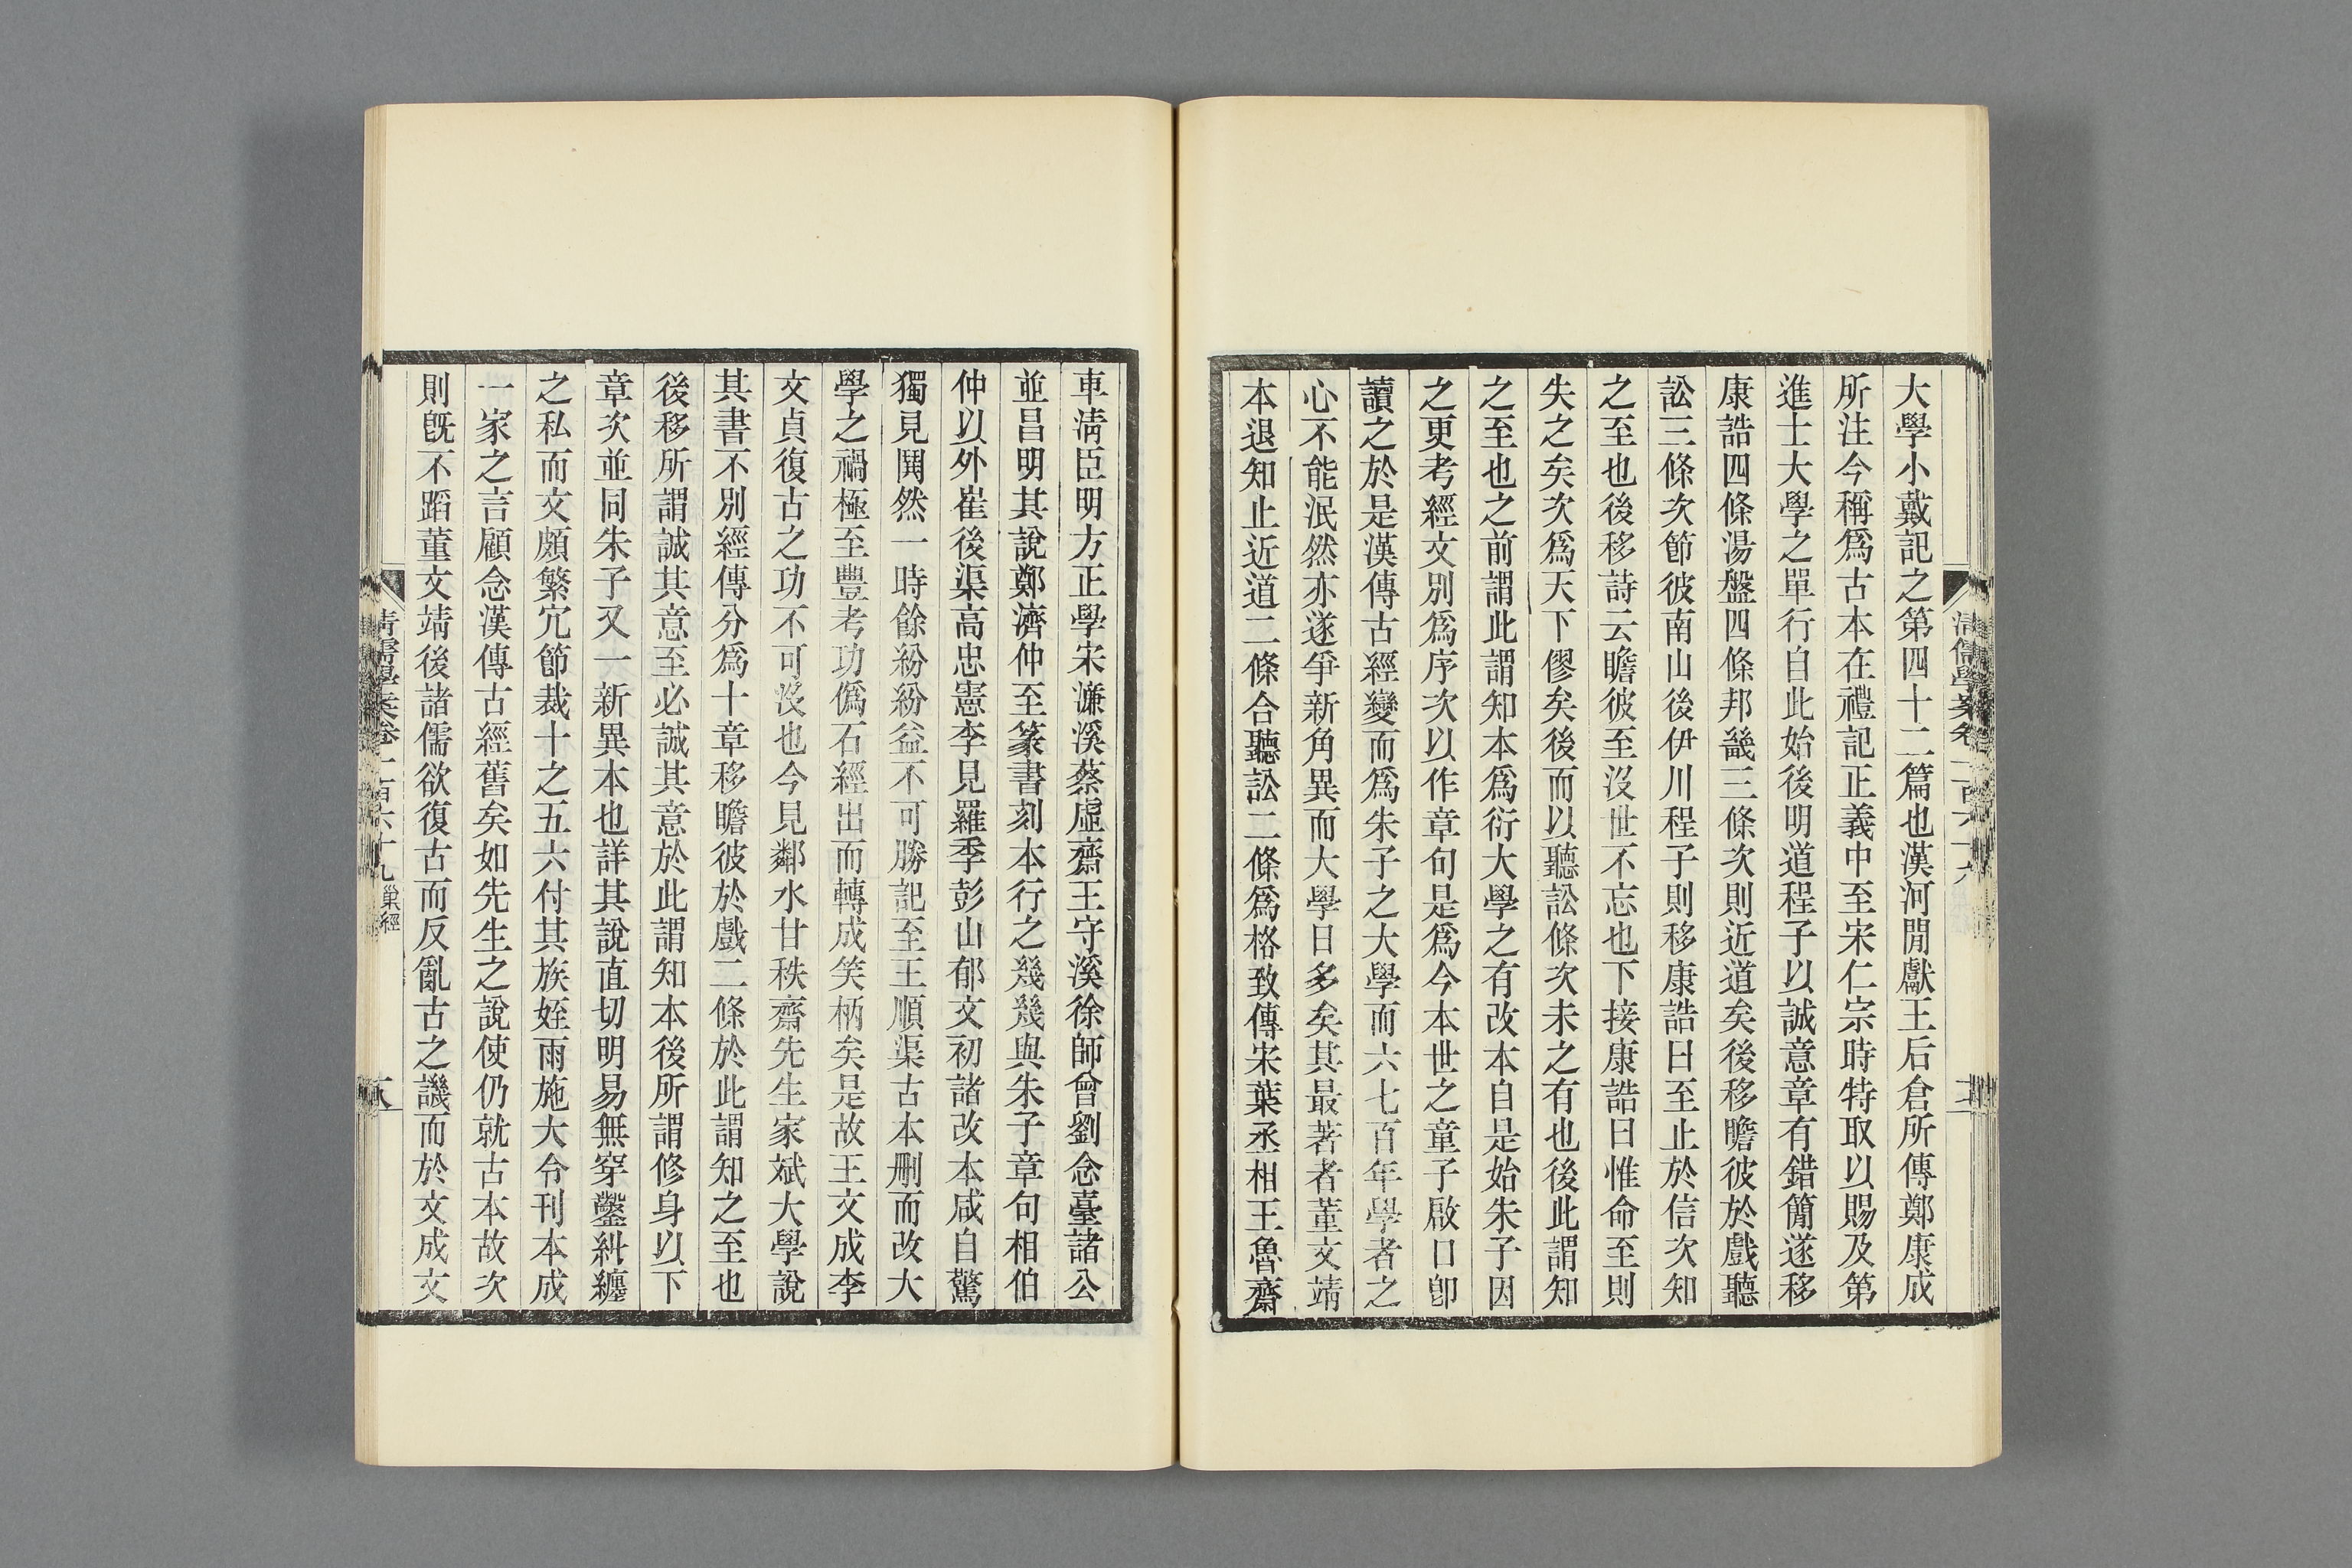 大學小戴記之第四十二篇也漢河閒獻王后倉所傳鄭康成
所注今稱爲古本在禮記正義中至宋仁宗時特取以賜及第
進士大學之單行自此始後明道程子以誠意章有錯簡遂移
康誥四條湯盤四條邦畿三條次則近道矣後移瞻彼於戲聽
訟三條次節彼南山後伊川程子則移康誥曰至止於信次知
之至也後移詩云瞻彼至沒世不忘也下接康誥曰惟命至則
失之矣次爲天下僇矣後而以聽訟條次未之有也後此謂知
之至也之前謂此謂知本爲衍大學之有改本自是始朱子因
之更考經文別爲序次以作章句是爲今本世之童子啟口卽
讀之於是漢傳古經變而爲朱子之大學而六七百年學者之
心不能泯然亦遂爭新角異而大學日多矣其最著者董文靖
本退知止近道二條合聽訟二條爲格致傳宋葉丞相王魯齋
車淸臣明方正學宋濂溪蔡虛齋王守溪徐師曾劉念臺諸公
並昌明其說鄭濟仲至篆書刻本行之幾幾與朱子章句相伯
仲以外崔後渠高忠憲李見羅季彭山郁文初諸改本咸自驚
獨見鬨然一時餘紛紛益不可勝記至王順渠古本刪而改大
學之禍極至豐考功僞石經出而轉成笑柄矣是故王文成李
文貞復古之功不可沒也今見鄰水甘秩齋先生家斌大學說
其書不別經傳分爲十章移瞻彼於戲二條於此謂知之至也
後移所謂誠其意至必誠其意於此謂知本後所謂修身以下
章次並同朱子又一新異本也詳其說直切明易無穿鑿紕纏
之私而文頗繁冗節裁十之五六付其族姪雨施大令刊本成
一家之言顧念漢傳古經舊矣如先生之說使仍就古本故次
則旣不蹈董文靖後諸儒欲復古而反亂古之譏而於文成文
淸儒學案卷一百六十九 巢經